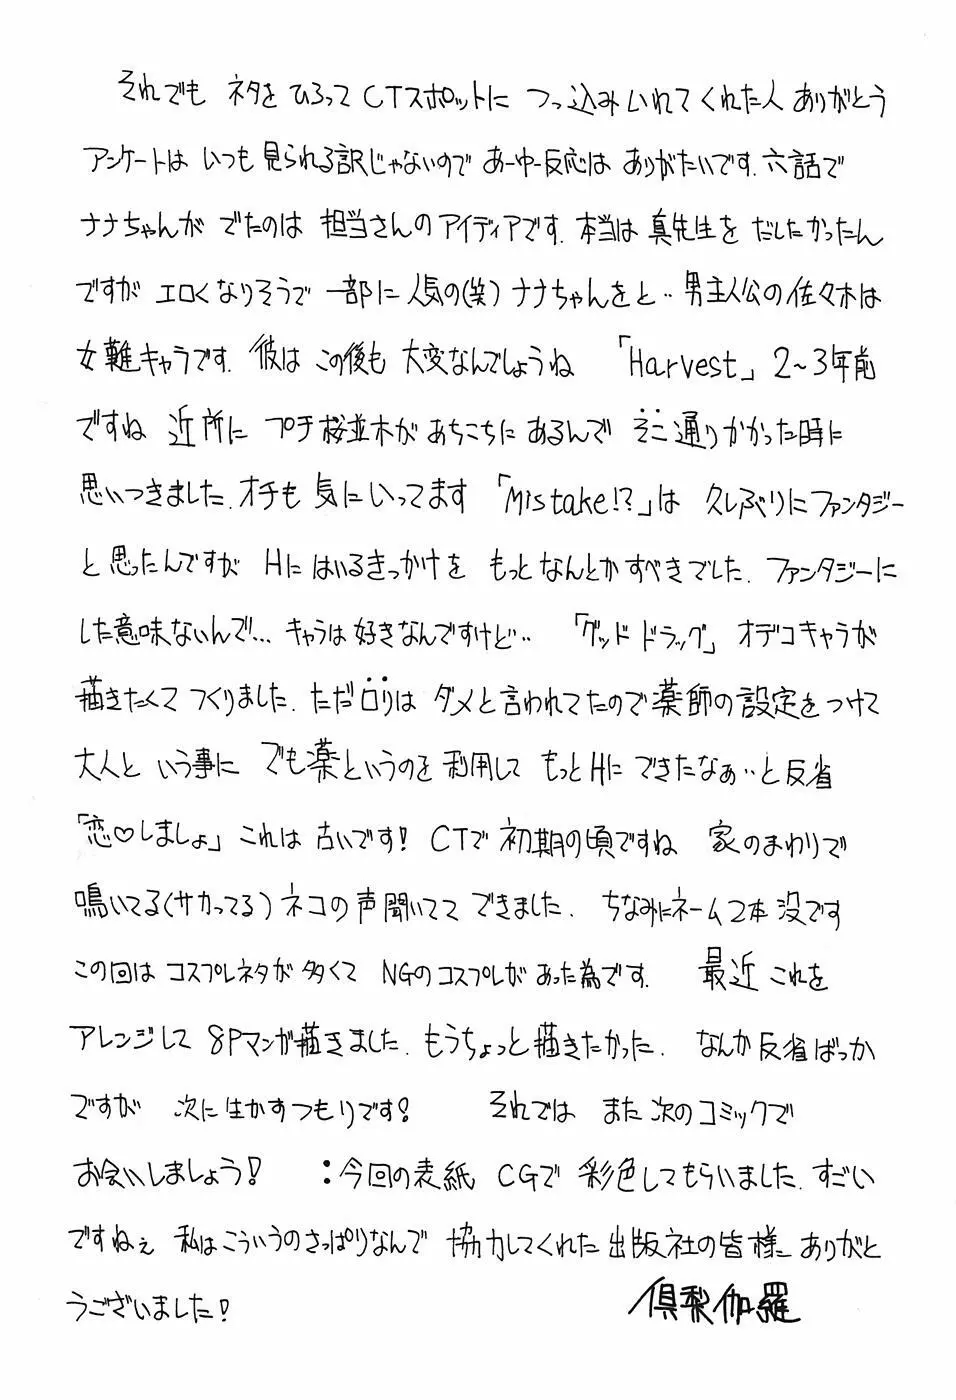 それでも ネタを ひろって CTスポットに つっ込みいれてくれた人 ありがとう
アンケートは いつも見られる訳じゃないので あーゆー反応は ありがたいです.六話で
ナナちゃんが でたのは 担当さんのアイディアです.本当は 真先生を だしたかったん
ですが エロくなりそうで 一部に人気の(笑)ナナちゃんをと‥男主人公の佐々木は
女難キャラです.彼は この後も 大変なんでしょうね 「Harvest」2〜3年前
ですね 近所に プチ桜並木が あちこちに あるんで そこ通りかかった時に
思いつきました.オチも 気にいってます 「Mistake!?」は 久しぶりにファンタジー
と思ったんですが Hにはいるきっかけを もっとなんとかすべきでした.ファンタジーに
した意味ないんで!…キャラは好きなんですけど‥ 「グッド ドラッグ」オデコキャラが
描きたくて つくりました.ただロリは ダメと言われてたので薬師の設定をつけて
大人と いう事に でも薬というのを 利用して もっとHに できたなぁ‥と反省
「恋♡しましょ」これは 古いです! CTで 初期の頃ですね 家のまわりで
鳴いてる(サカってる)ネコの声聞いてて できました. ちなみにネーム2本 没です
この回は コスプレネタが 多くて NGのコスプレが あった為です. 最近 これを
アレンジして 8Pマンガ描きました.もうちょっと描きたかった. なんか反省ばっか
ですが 次に 生かすつもりです! それでは また 次のコミックで
お会いしましょう! :今回の表紙 CGで 彩色してもらいました.すごい
ですねぇ 私はこういうのさっぱりなんで 協力してくれた 出版社の皆様 ありがと
うございました!
倶梨伽羅